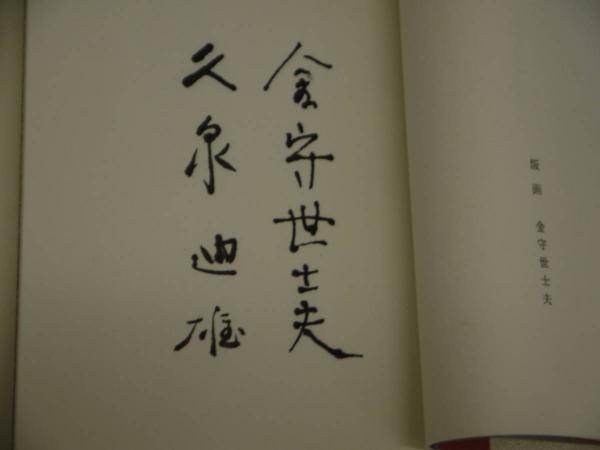 版画 金守世士夫
金守世士夫
久泉迪雄